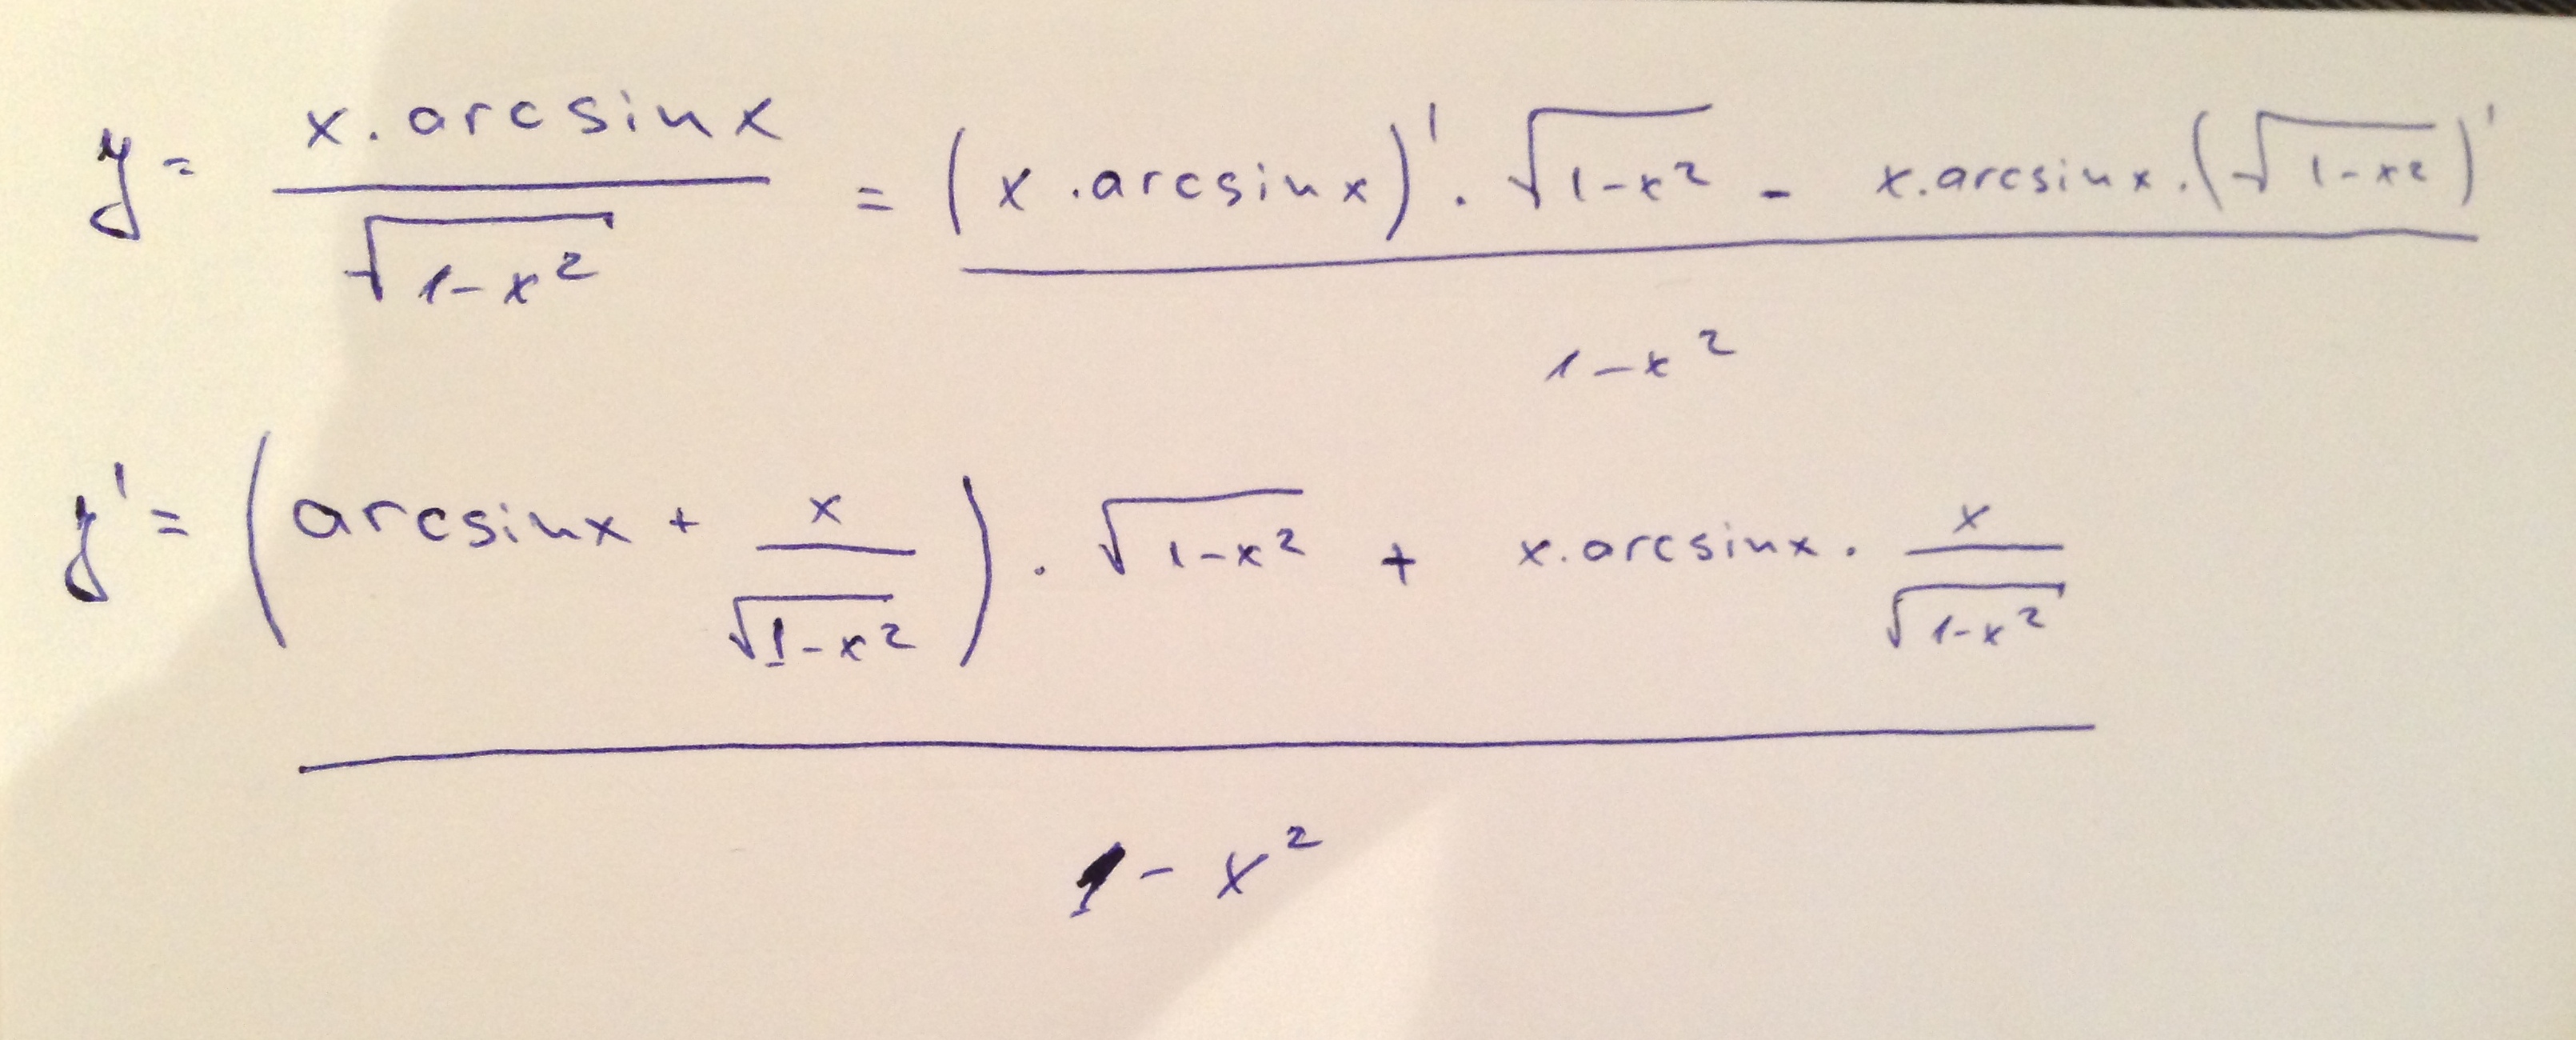 y = x.arcsinx / √(1-x²) = ((x.arcsinx)' . √(1-x²) - x.arcsinx.(√(1-x²))') / (1-x²)
y' = ((arcsinx + x/√(1-x²)) . √(1-x²) + x.arcsinx . x/√(1-x²)) / (1-x²)